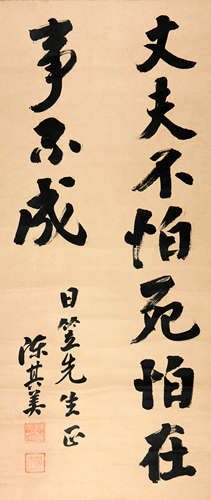 丈夫不怕死怕在
事不成
日笠先生正
陈其美